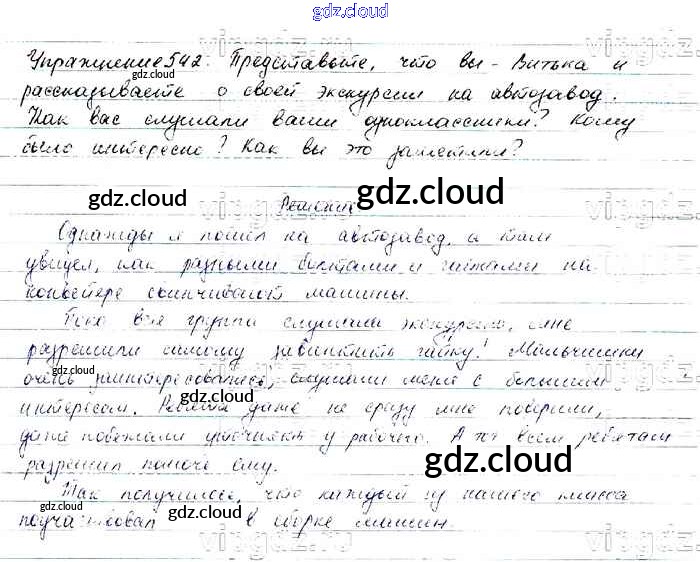 gdz.cloud
Упражнение 542. Представьте, что вы - Витька и
gdz.cloud
рассказываете о своей экскурсии на автозавод.
Как вас слушали ваши одноклассники? Кому
было интересно? Как вы это заметили?
gdz.cloud
gdz.cloud
Решение
Однажды я пошёл на автозавод, а там
увидел, как разными болтами и гайками на
конвейере свинчивают машины.
Пока вся группа слушала экскурсию, мне
разрешили самому завинтить гайку! Мальчишки
очень заинтересовались, слушали меня с большим
gdz.cloud
интересом. Ребята даже не сразу мне поверили,
даже побежали уточнять у рабочего. А тот всем ребятам
разрешил помочь ему.
gdz.cloud
Так получилось, что каждый из нашего класса
поучаствовал в сборке машин.
gdz.cloud
gdz.cloud